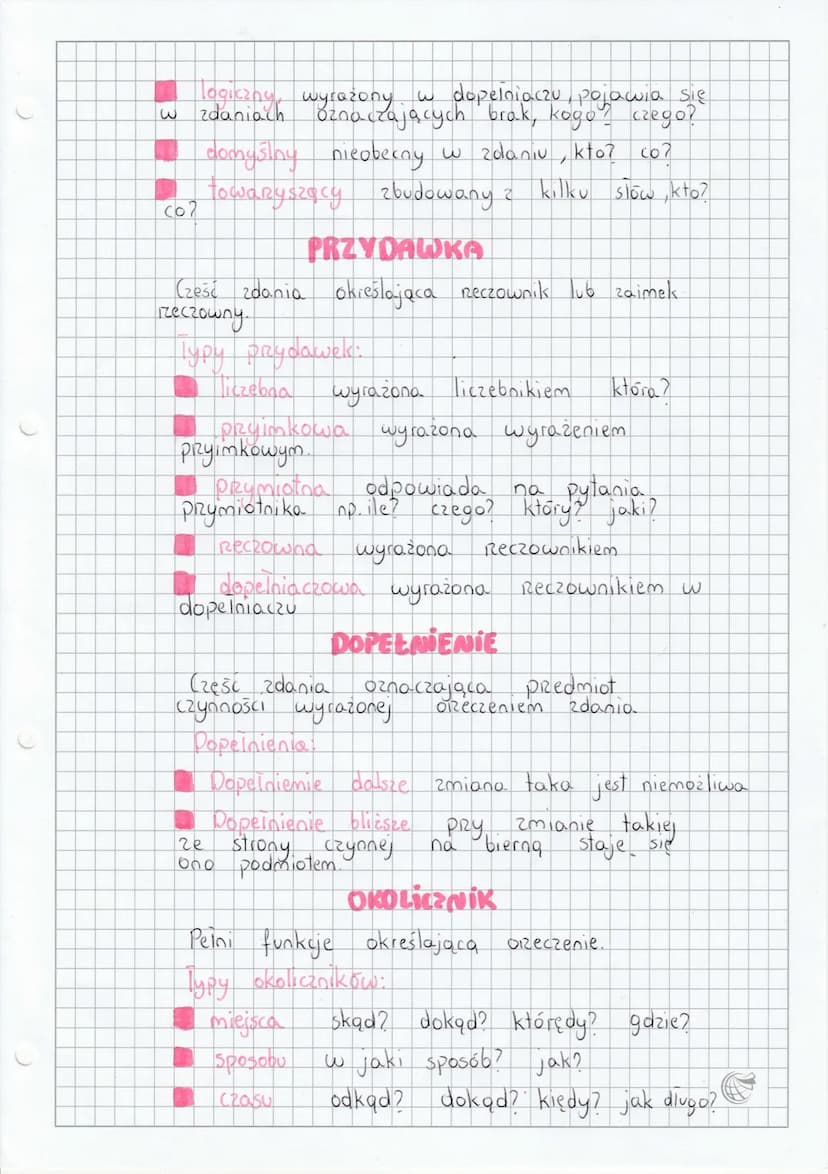 logiczny, wyrażony w dopełniaczu, pojawia się
w zdaniach oznaczających brak, kogo? czego?
domyślny nieobecny w zdaniu, kto? co?
towaryszący zbudowany z kilku słów, kto?
co?
PRZYDAWKA
Cześć zdania określająca rzeczownik lub zaimek
rzeczowny.
Typy przydawek:
liczebna wyrażona liczebnikiem która?
pryimkowa wyrażona wyrażeniem
pryimkowym.
przymiotna odpowiada na pytania
przymiotnika np. ile? czego? który? jaki?
rzeczowna wyrażona rzeczownikiem
dopełniaczowa wyrażona rzeczownikiem w
dopełniaczu
DOPEŁNIENIE
Część zdania oznaczająca przedmiot
czynności wyrażonej orzeczeniem zdania.
Dopełnienia:
Dopełniemie dalsze zmiana taka jest niemożliwa
Dopełnienie bliższe przy zmianie takiej
ze strony czynnej na bierną staje się
ono podmiotem.
OKOLICZNIK
Pełni funkcje określającą orzeczenie.
Typy okoliczników:
miejsca skąd? dokąd? którędy? gdzie?
sposobu w jaki sposób? jak?
czasu odkąd? dokąd? kiędy? jak długo?